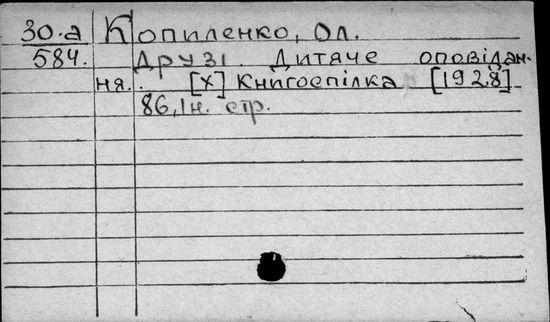 30.а Копиленко, Ол.
584. Друзі. Дитяче оповідан-
ня. [Х] Книгоспілка [1928]
86, 1н. стр.